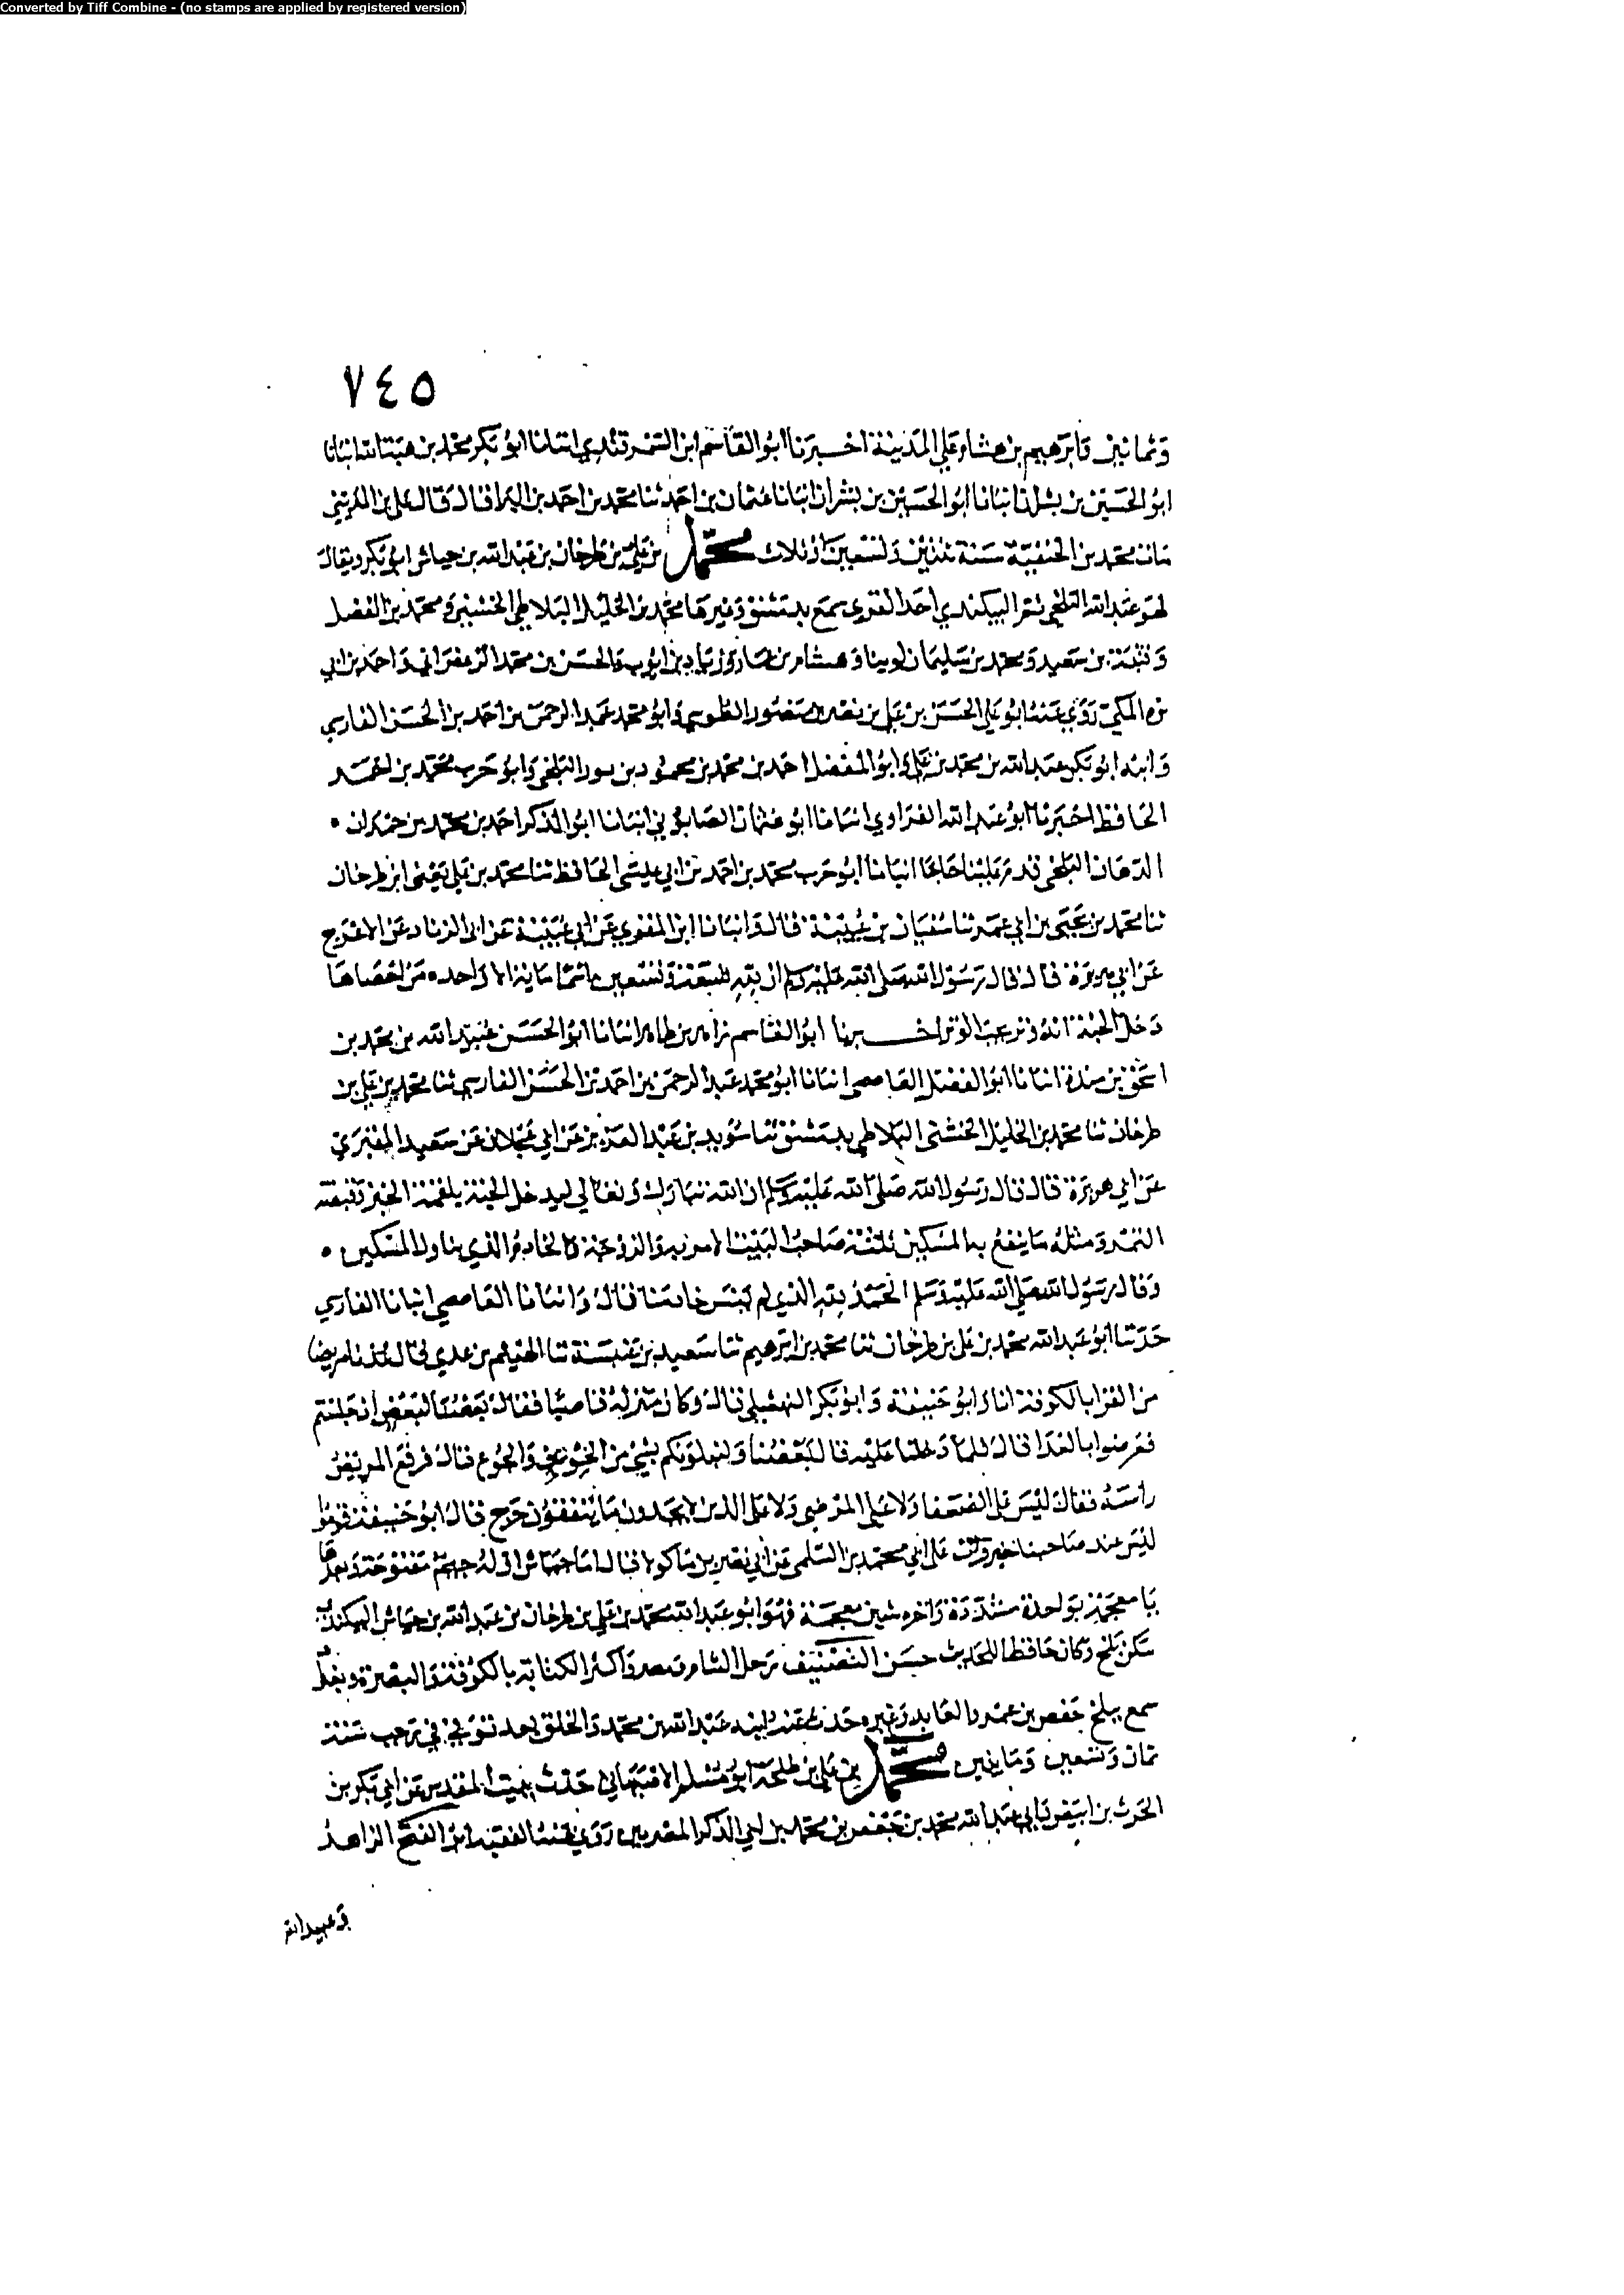 Converted by Tiff Combine - (no stamps are applied by registered version)
٧٤٥
وثمانين وابرهيم بن هشام على المدينة اخبرنا ابو القاسم ابن السمرقندي انبانا ابو بكر محمد بن هبة الله انبانا
ابو الحسين بن بشران انبانا ابو الحسين بن بشران انبانا عثمان بن احمد ثنا محمد بن احمد بن البرا قال قال علي بن المديني
مات محمد بن الحنفية سنة ثنتين وتسعين او ثلاث محمد بن علي بن طرخان بن عبد الله بن جياش ابو بكر ويقال
ابو عبد الله البلخي ثم البيكندي احد سمع بدمشق وغيرها محمد بن الخليل البلاطي الخشني ومحمد بن الفضل
وقتيبة بن سعيد ومحمد بن سليمان لوينا وهشام بن عمار وزياد بن ايوب والحسن بن محمد الزعفراني واحمد بن ابي
بزه المكي روى عنه ابو علي الحسن بن علي بن نصر بن منصور الطوسي وابو محمد عبد الرحمن بن احمد بن الحسن الفارسي
وابنه ابو بكر عبد الله بن محمد بن علي وابو الفضل احمد بن محمد بن محمود بن البلخي وابو حرب محمد بن احمد
الحافظ اخبرنا ابو عبد الله الفراوي انبانا ابو عثمان الصابوني انبانا ابو الذكر احمد بن محمد بن حمدان
الدهان البلخي قدم علينا حاجا انبانا ابو حرب محمد بن احمد بن ابي عيسى الحافظ ثنا محمد بن علي يعني ابن طرخان
ثنا محمد بن يحيى بن ابي عمر ثنا سفيان بن عيينة قال وانبانا ابن المقري عن ابن عيينة عن ابي الزناد عن الاعرج
عن ابي هريرة قال قال رسول الله صلى الله عليه وسلم ان لله تسعة وتسعين اسما ماية الا واحده من احصاها
دخل الجنة انه وتر يحب الوتر اخبرنا ابو القاسم زاهر بن طاهر انبانا ابو الحسن عبيد الله بن محمد بن
اسحق بن مندة انبانا ابو الفضل العاصمي انبانا ابو محمد عبد الرحمن بن احمد بن الحسن الفارسي ثنا محمد بن علي بن
طرخان ثنا محمد بن الخليل الخشني البلاطي بدمشق ثنا سويد بن عبد العزيز عن ابن عجلان عن سعيد المقبري
عن ابي هريرة قال قال رسول الله صلى الله عليه وسلم ان الله تبارك وتعالى ليدخل الجنة بلقمة الخبز وقبصة
التمر ومثله ما ينفع به المسكين ثلثة صاحب البيت الامر به والزوجة والخادم الذي يناول المسكين
وقال رسول الله صلى الله عليه وسلم الحمد لله الذي لم ينس خادمنا قال وانبانا العاصمي انبانا الفارسي
حدثنا ابو عبد الله محمد بن علي بن طرخان ثنا محمد بن ابرهيم ثنا سعيد بن عنبسة ثنا الهيثم بن عدي قال عدنا مريضا
من القرا بالكوفة انا وابو حنيفة وابو بكر النهشلي قال وكان منزله قاصيا فقال بعضنا لبعض اذ جلستم
فعرضوا بالغدا قال فلما دخلنا عليه قال بعضنا ولنبلونكم بشي من الخوف والجوع قال فرفع المريض
راسه فقال ليس على الضعفا ولا على المرضى ولا على الذين لا يجدون ما ينفقون حرج قال ابو حنيفة قوموا
ليس عند صاحبنا خير قرات على ابي محمد بن السلمي عن ابي نصر بن ماكولا قال اما جياش اوله جيم مفتوحة وبعدها
يا معجمة بواحدة مشددة واخره شين معجمة فهو ابو عبد الله محمد بن علي بن طرخان بن عبد الله بن جياش البيكندي
سكن بلخ وكان حافظا للحديث حسن التصنيف رحل الشام ومصر واكثر الكتابة بالكوفة والبصرة وبغداد
سمع ببلخ جعفر بن عمرو العابد وغيره حدث عنه ابنه عبد الله بن محمد والخلق بعد توفي في رجب سنة
ثمان وتسعين ومايتين محمد بن علي بن طلحة ابو مسلم الاصبهاني حدث ببيت المقدس عن ابي بكر بن
الحرث بن ابيض وابي عبد الله محمد بن جعفر بن محمد بن ابي الذكر المصريين روى عنه الفقيه ابو الفتح الزاهد
وعبيد الله